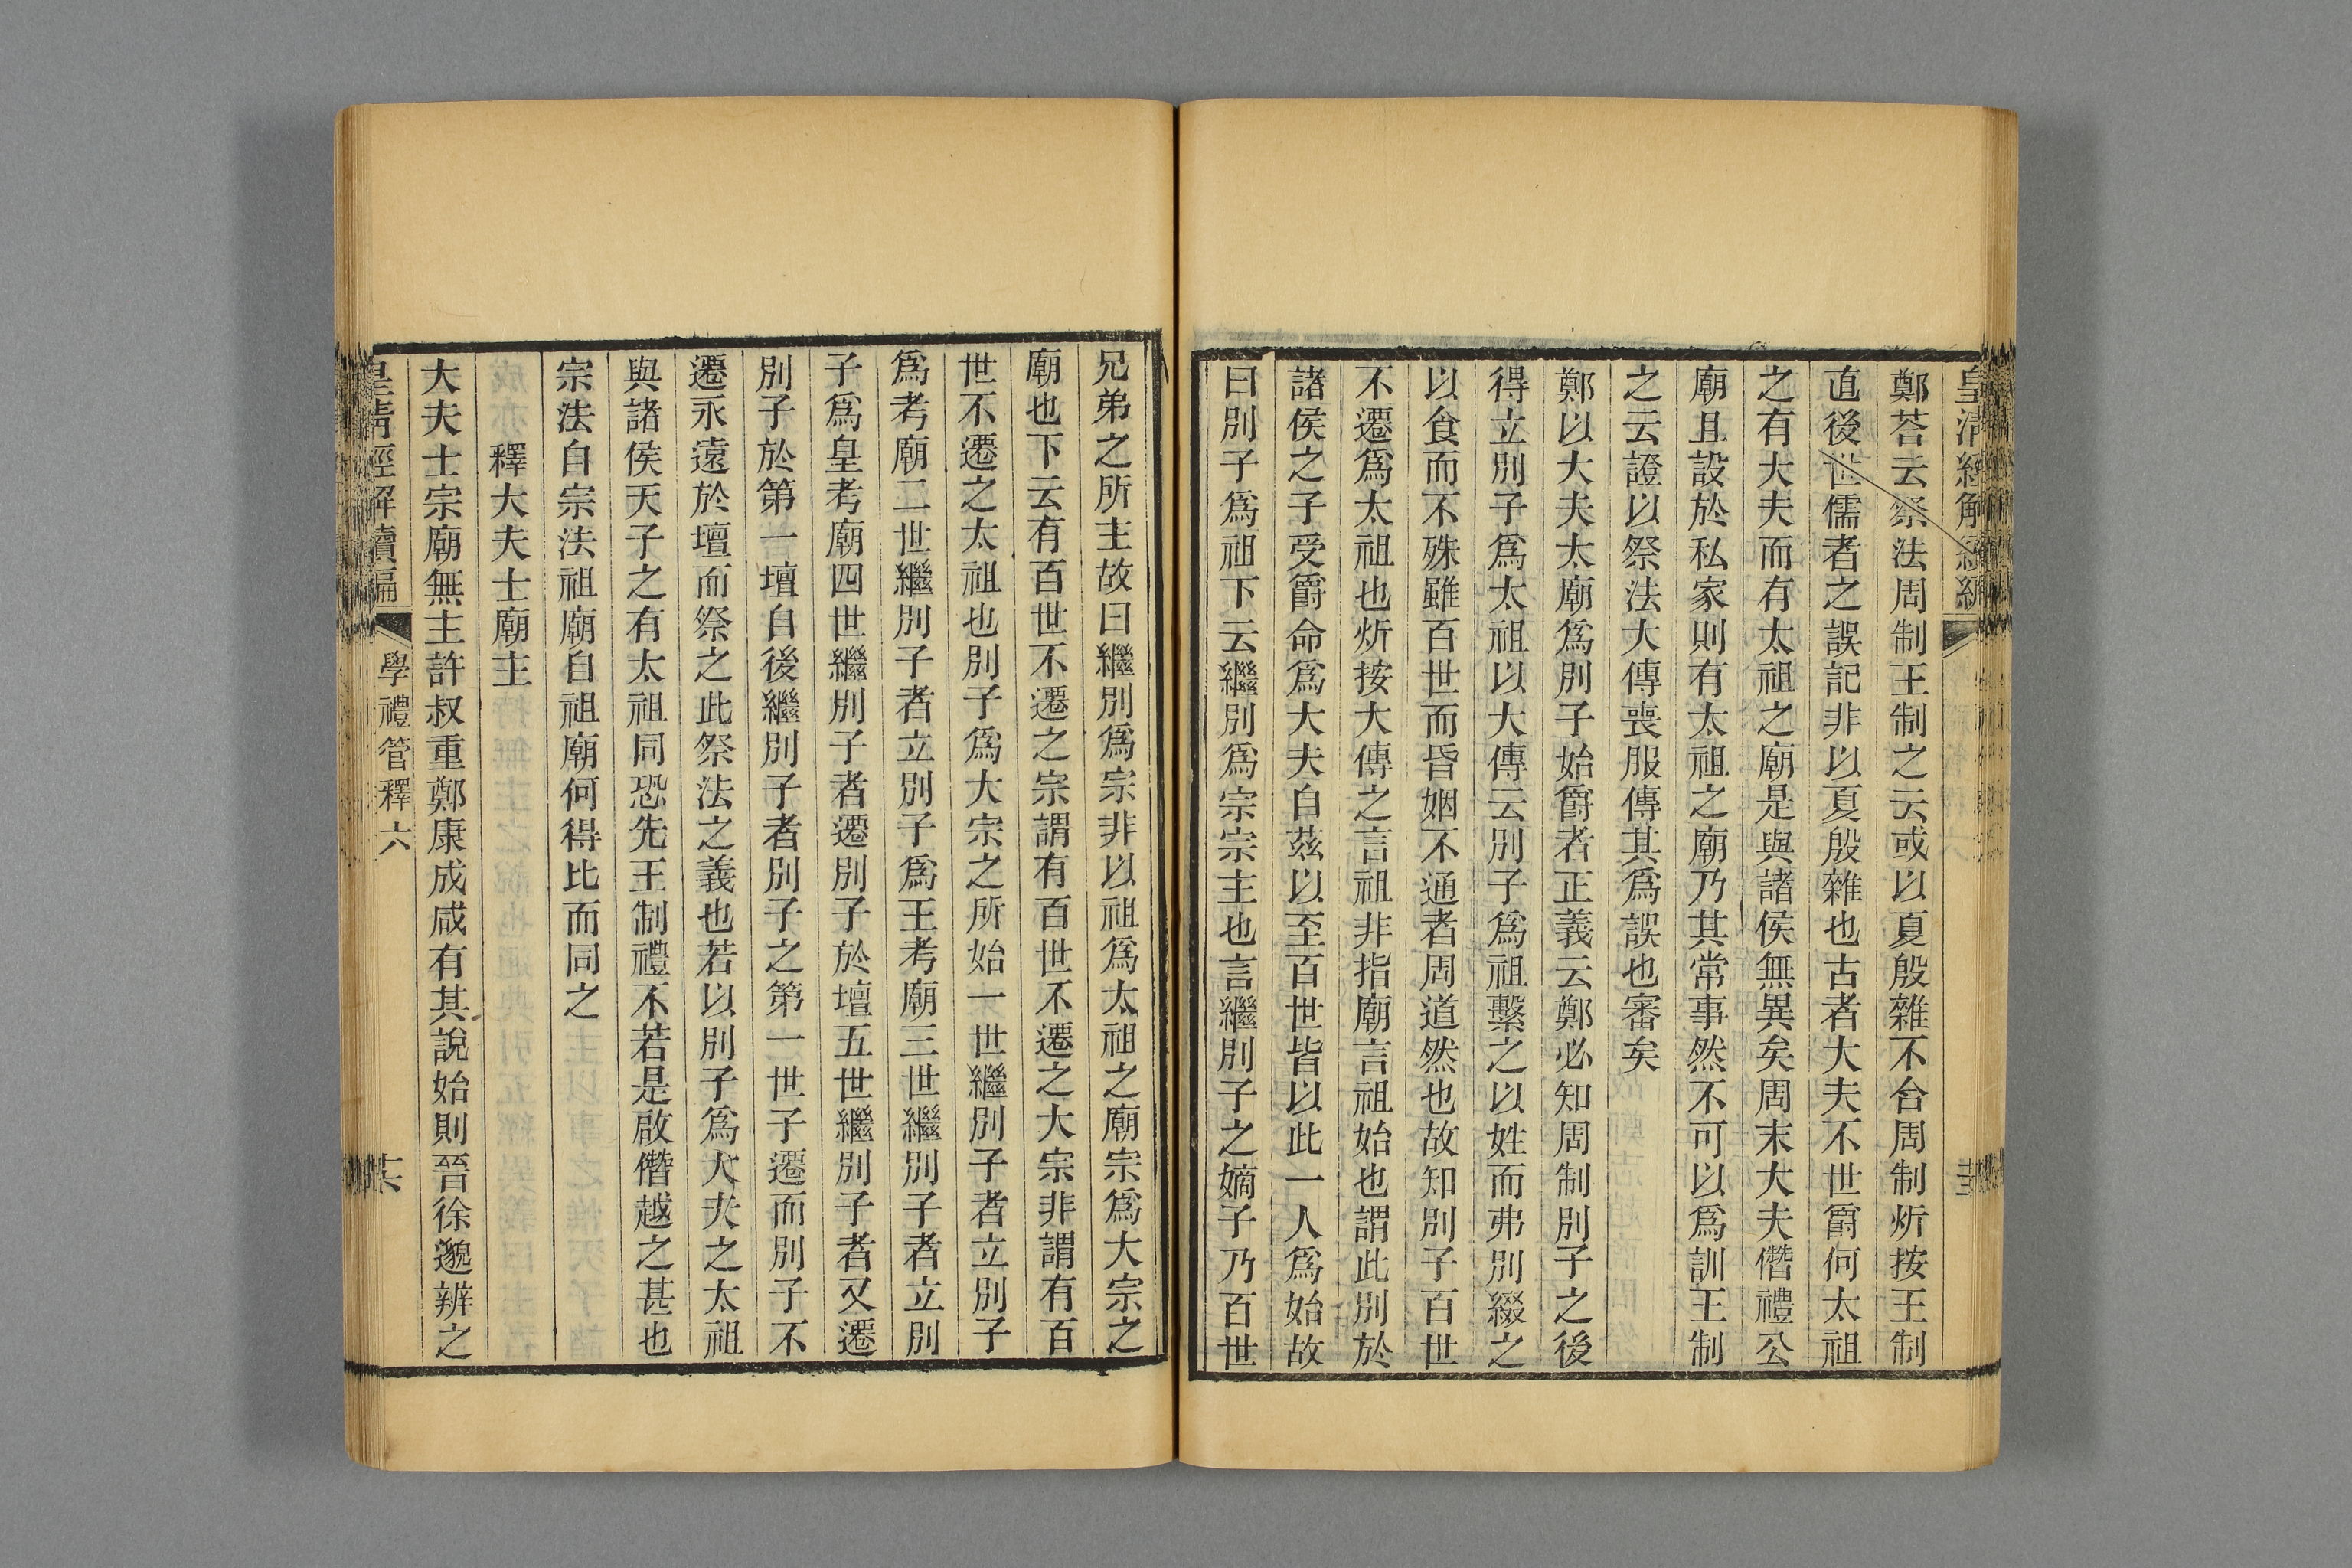 皇清經解續編
鄭荅云祭法周制王制之云或以夏殷雜不合周制炘按王制
直後世儒者之誤記非以夏殷雜也古者大夫不世爵何太祖
之有大夫而有太祖之廟是與諸侯無異矣周末大夫僭禮公
廟且設於私家則有太祖之廟乃其常事然不可以爲訓王制
之云證以祭法大傳喪服傳其爲誤也審矣
鄭以大夫太廟爲別子始爵者正義云鄭必知周制別子之後
得立別子爲太祖以大傳云別子爲祖繫之以姓而弗別綴之
以食而不殊雖百世而昏姻不通者周道然也故知別子百世
不遷爲太祖也炘按大傳之言祖非指廟言祖始也謂此別於
諸侯之子受爵命爲大夫自茲以至百世皆以此一人爲始故
曰別子爲祖下云繼別爲宗宗主也言繼別子之嫡子乃百世
兄弟之所主故曰繼別爲宗非以祖爲太祖之廟宗爲大宗之
廟也下云有百世不遷之宗謂有百世不遷之大宗非謂有百
世不遷之太祖也別子爲大宗之所始一世繼別子者立別子
爲考廟二世繼別子者立別子爲王考廟三世繼別子者立別
子爲皇考廟四世繼別子者遷別子於壇五世繼別子者又遷
別子於第一壇自後繼別子者別子之第一世子遷而別子不
遷永遠於壇而祭之此祭法之義也若以別子爲大夫之太祖
與諸侯天子之有太祖同恐先王制禮不若是啟僭越之甚也
宗法自宗法祖廟自祖廟何得比而同之
釋大夫士廟主
大夫士宗廟無主許叔重鄭康成咸有其說始則晉徐邈辨之
皇清經解續編
學禮管釋六